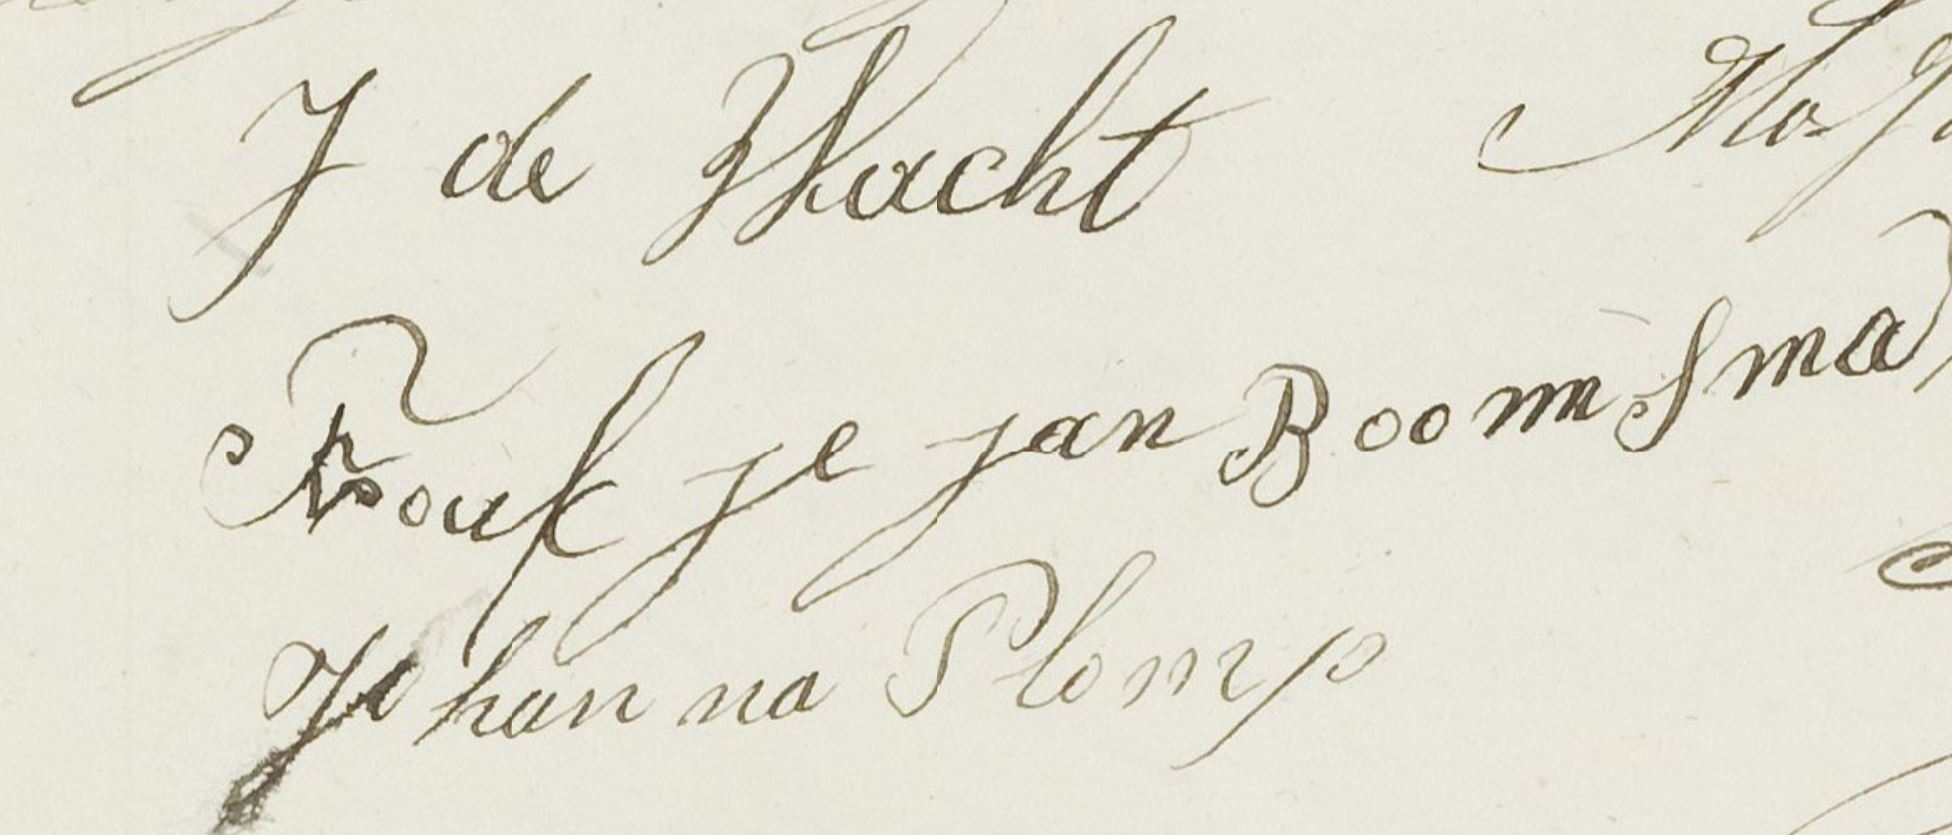 J de Wacht
Foukje jan Boomsma
Johanna Plomp